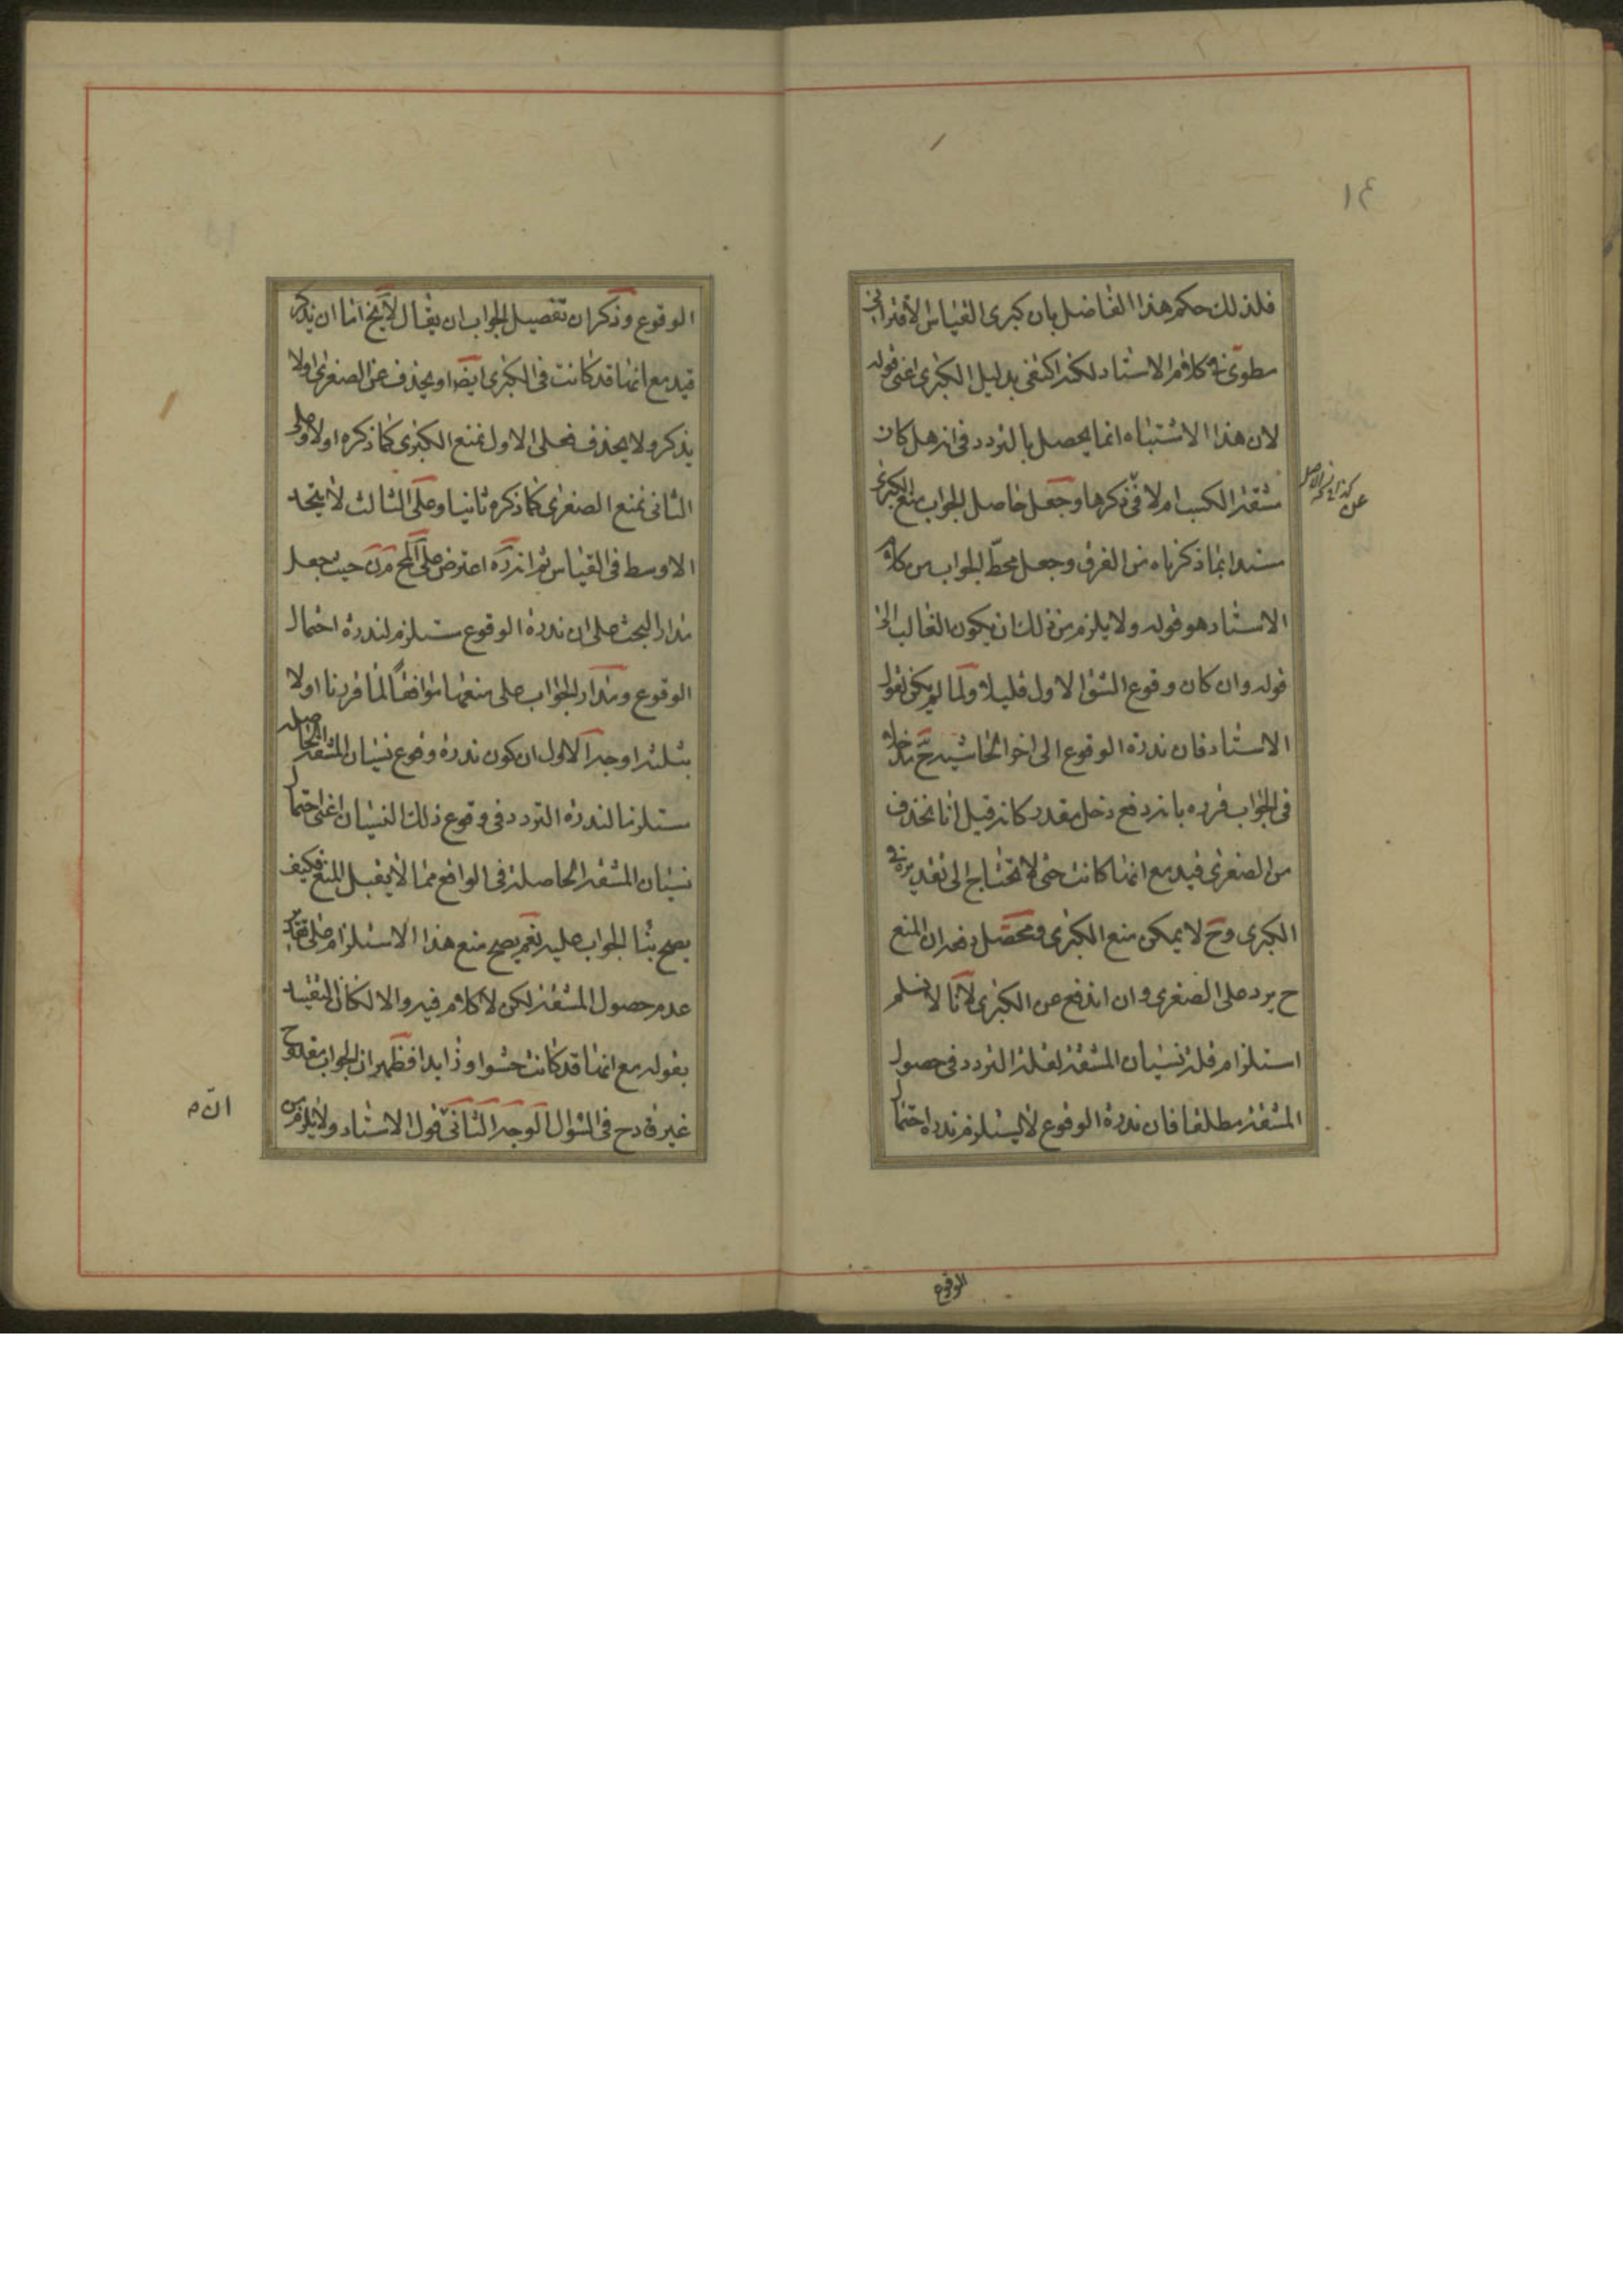 ١٤
فلذلك حكم هذا الفاضل بان كبرى القياس الاقترانى
مطوى فى كلام الاستاد لكنه اكتفى بدليل الكبرى اعنى قوله
لان هذا الاشتباه انما يحصل بالتردد فى انه هل كان
مشقة الكسب ام لا فى ذكرها وجعل حاصل الجواب منع الكبرى
مستندا بما ذكرناه من الفرق وجعل محطّ الجواب من كلام
الاستاد هو قوله ولا يلزم من ذلك ان يكون الغالب الخ
قوله وان كان وقوع الشق الاول قليلا ولما لم يكن لقول
الاستاد فان ندرة الوقوع الى اخر الحاشية ح مدخل
فى الجواب قرره بانه دفع دخل مقدر كانه قيل انا نحذف
من الصغرى قيد مع انها كانت حتى لا تحتاج الى تقديره فى
الكبرى وح لا يمكن منع الكبرى ومحصّل دفعه ان المنع
ح يرد على الصغرى وان اندفع عن الكبرى لانا لا نسلم
استلزام قلة نسيان المشقة لقلة التردد فى حصول
المشقة مطلقا فان ندرة الوقوع لا يستلزم ندرة احتمال
الوقوع
الوقوع وذكر ان تفصيل الجواب ان يقال لا يخ اما ان يذكر
قيد مع انها قد كانت فى الكبرى ايضا او يحذف عن الصغرى او لا
يذكر ولا يحذف فعلى الاول نمنع الكبرى كما ذكره اولا وعلى
الثانى نمنع الصغرى كما ذكره ثانيا وعلى الثالث لا يتحد
الاوسط فى القياس ثم انه ره اعترض على المح مدن حيث جعل
مدار البحث على ان ندرة الوقوع مستلزم لندرة احتمال
الوقوع ومدار الجواب على منعها موافقاً لما قررنا اولا
بثلثة اوجه الاول ان كون ندرة وقوع نسيان المشقة الحاصلة
مستلزما لندرة التردد فى وقوع ذلك النسيان اعنى احتمال
نسيان المشقة الحاصلة فى الواقع مما لا يقبل المنع فكيف
يصح بناء الجواب عليه نعم يصح منع هذا الاستلزام على تقدير
عدم حصول المشقة لكن لا كلام فيه والا لكان التقييد
بقوله مع انها قد كانت حشوا وزايدا فظهر ان الجواب مقدوح
غير قادح فى السؤال الوجه الثانى قول الاستاد ولا يلزم من